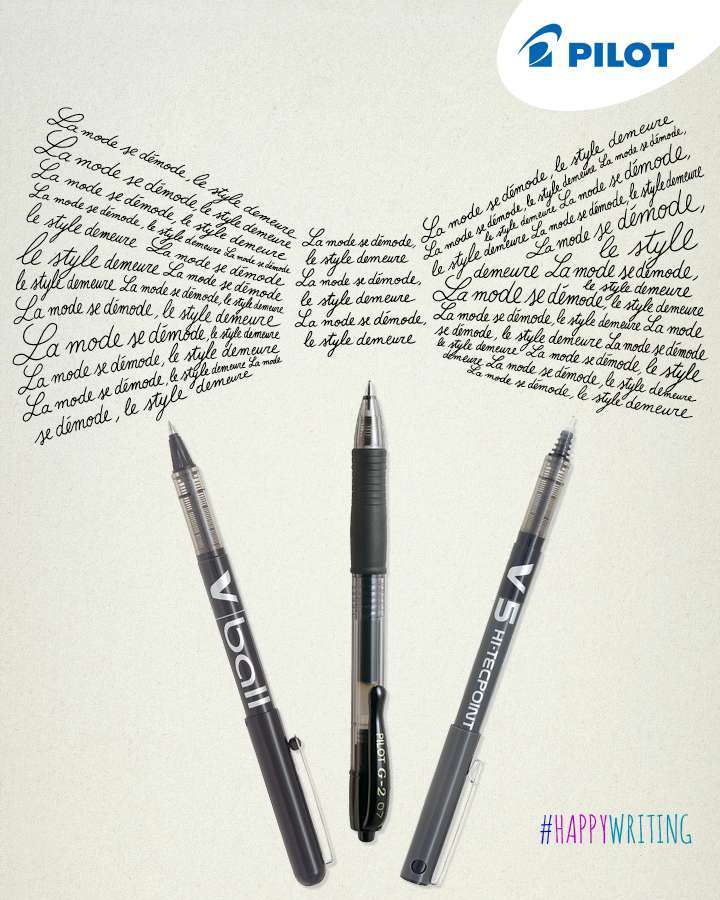 PILOT
La mode se démode, le style demeure
La mode se démode le style demeure
La mode se démode, le style demeure
La mode se démode, le style demeure La mode se démode
le style demeure La mode se démode
le style demeure La mode se démode
le style demeure La mode se démode, le style demeure
La mode se démode, le style demeure
La mode se démode, le style demeure
La mode se démode, le style demeure
La mode se démode, le style demeure La mode
se démode, le style demeure
La mode se démode,
le style demeure
La mode se démode,
le style demeure
La mode se démode,
le style demeure
La mode se démode, le style demeure
La mode se démode, le style demeure La mode se démode,
le style demeure La mode se démode,
le style demeure La mode se démode, le style demeure
La mode se démode,
le style
demeure La mode se démode,
le style demeure
La mode se démode le style demeure
La mode se démode, le style demeure La mode
se démode, le style demeure La mode se démode
le style demeure La mode se démode, le style
demeure La mode se démode, le style demeure
La mode se démode, le style demeure
V ball
PILOT G-2 07
V5 HI-TECPOINT
#HAPPYWRITING